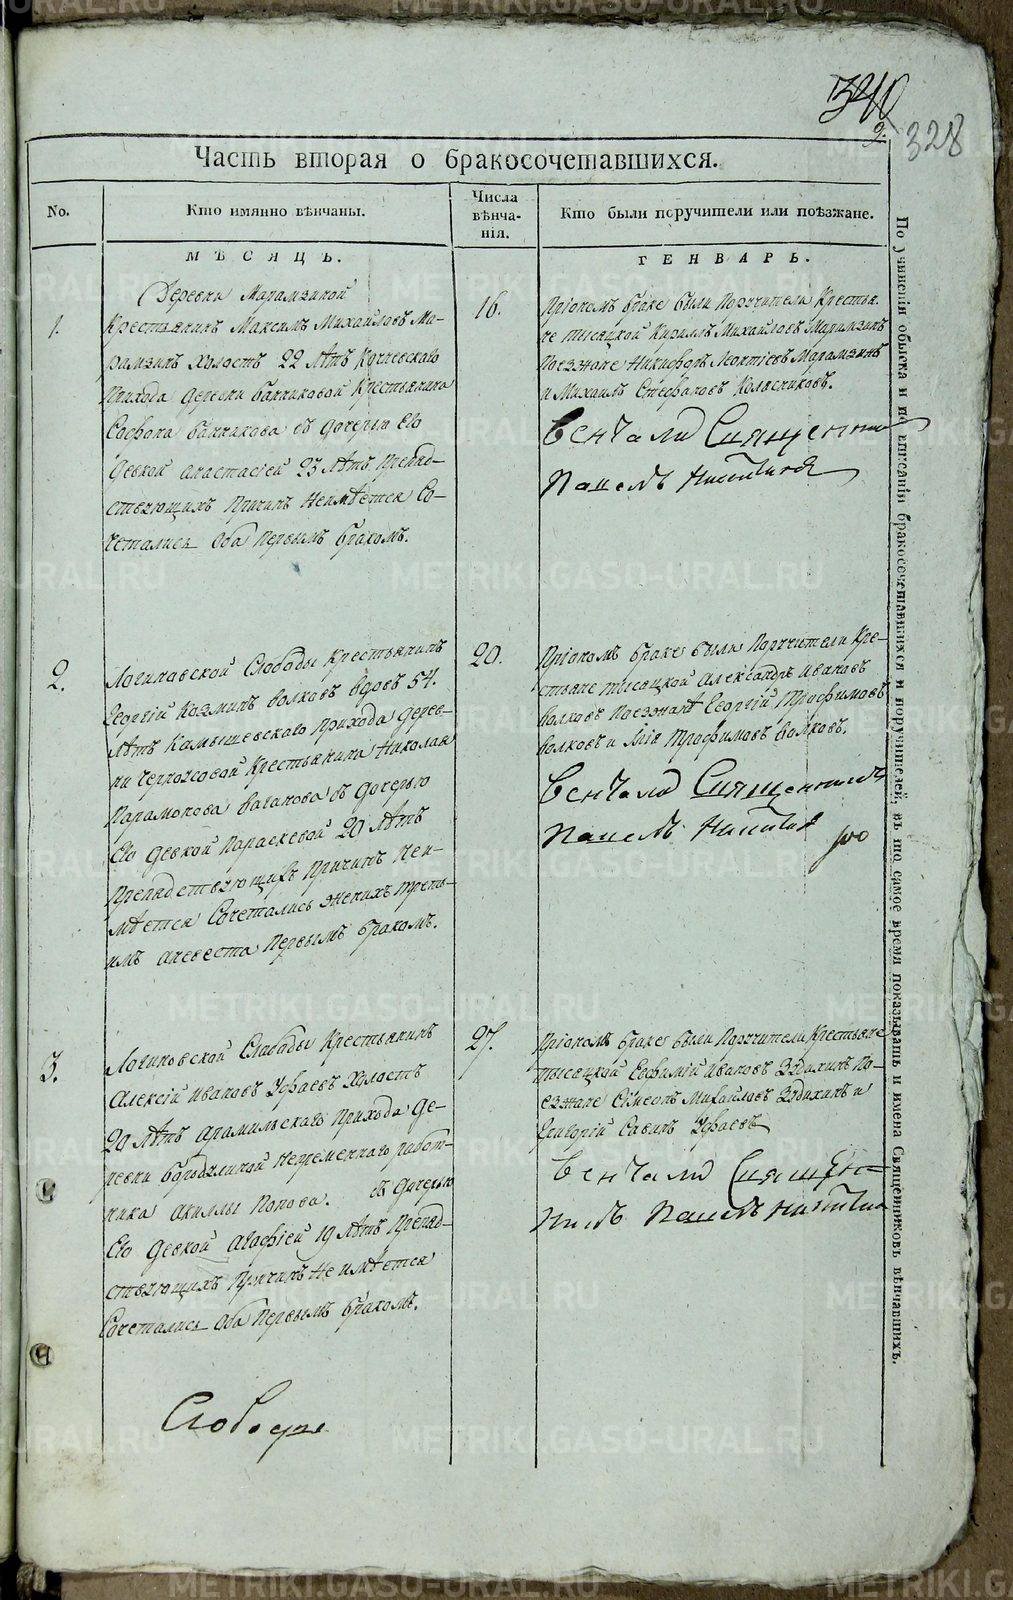 340
2.
328
Часть вторая о бракосочетавшихся.
No.
Кто имянно вѣнчаны.
Числа
вѣнча-
нія.
Кто были поручители или поѣзжане.
МѢСЯЦЪ.
ГЕНВАРЬ.
1.
Деревни Марамзиной
Крестьянинъ Максимъ Михайловъ Ма-
рамзинъ Холостъ 22 лѣтъ
Прихода деревни Банниковой Крестьянина
Софона Банникова съ дочерью Его
Девкой Анастасіей 23 лѣтъ Препяд-
ствующихъ Причинъ Неимѣется Со-
четались Оба Первымъ бракомъ.
16.
Приономъ браке были Поручители Крестья-
не тысяцкой Кирилъ Михайловъ Марамзинъ
Поезжане Никифоръ Леонтіевъ Марамзинъ
и Михаилъ Стефановъ Колясниковъ.
Венчали Священни
Павелъ Никитинъ
2.
Логиновской Слободы Крестьянинъ
Георгій Козминъ Волковъ вдовъ 54.
лѣтъ Камышевскаго Прихода Дерев-
ни Черноусовой Крестьянина Николая
Парамонова Ваганова съ дочерью
Его Девкой Параскевой 20 лѣтъ
Препядствующихъ Причинъ Неи-
мѣется Сочетались женихъ треть-
имъ аневеста Первымъ бракомъ.
20.
Приономъ браке были Поручители Кре-
стьяне тысяцкой Александръ Ивановъ
Волковъ Поезжанѣ Георгій Трофимовъ
Волковъ и Илія Трофимовъ Волковъ.
Венчали Священникъ
Павелъ Никитинъ
3.
Логиновской Слабоды Крестьянинъ
Алексій Ивановъ Уфаевъ Холостъ
20 лѣтъ Арамильскаго Прихода де-
ревни Бородулиной Непременнаго работ-
ника Акиллы Попова. съ дочерью
Его Девкой Агафіей 19 лѣтъ Препяд-
ствующихъ Причинъ Не имѣется
Сочетались Оба Первымъ бракомъ.
27.
Приономъ браке были Поручители Крестьяне
тысяцкой Евфимій Ивановъ Здохинъ По-
езжане Симеонъ Михайловъ Здохинъ и
Григорій Савинъ Уфаевъ
Венчали Священ-
никъ Павелъ Никитинъ
По учиненіи обыска и по вписаніи бракосочетавшихся и поручителей, въ то самое время показывать и имена Священниковъ вѣнчавшихъ.
METRIKI.GASO-URAL.RU